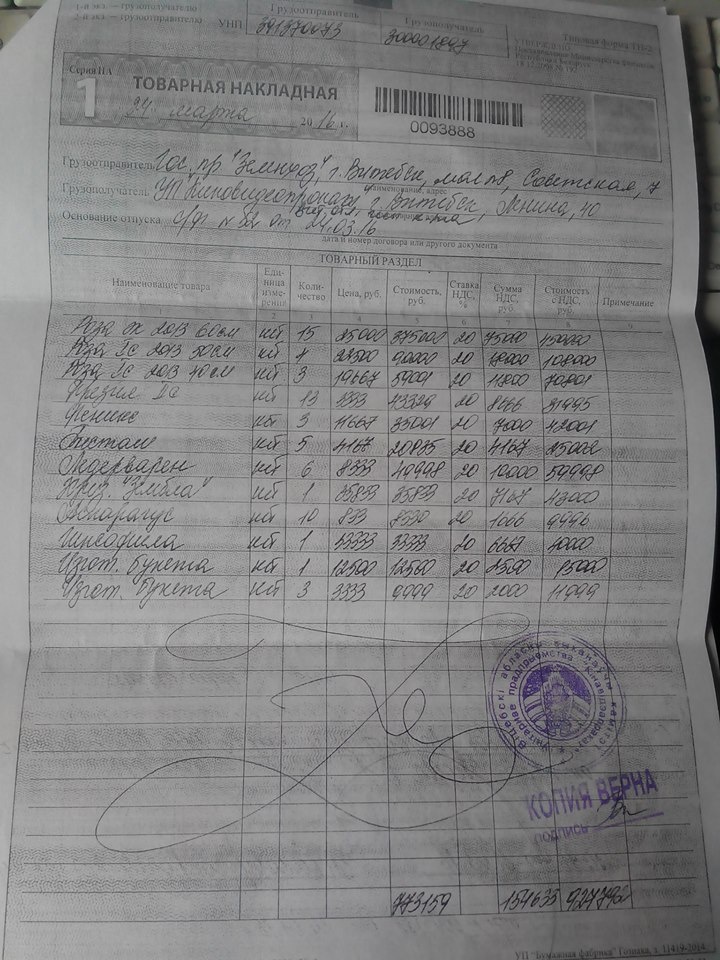 1-й экз. – грузополучателю
2-й экз. – грузоотправителю
Грузоотправитель
Грузополучатель
УНП 391370073 300001897
Типовая форма ТН-2
УТВЕРЖДЕНО
Министерства финансов
Республики Беларусь
18.12.2008 № 192
Серия НА
1
ТОВАРНАЯ НАКЛАДНАЯ
24 марта 2016 г.
0093888
Грузоотправитель Гос. пр. г. Витебск, Советская,
наименование, адрес
Грузополучатель УП Киновидеопрокат г. Витебск, Ленина, 40
Основание отпуска с/ф N 52 от 24.03.16
дата и номер договора или другого документа
ТОВАРНЫЙ РАЗДЕЛ
Наименование товара Единица измерения Количество Цена, руб. Стоимость, руб. Ставка НДС, % Сумма НДС, руб. Стоимость с НДС, руб. Примечание
Роза 2013 60см шт 15 25000 375000 20 75000 450000
Роза 2с 2013 50см шт 4 22500 90000 20 18000 108000
Роза 2с 2013 40см шт 3 19667 59001 20 11800 70801
Фрезия 2с шт 13 3333 43329 20 8666 51995
Феникс шт 3 11667 35001 20 7000 42001
шт 5 4167 20835 20 4167 25002
шт 6 8333 49998 20 10000 59998
"Зембла" шт 1 35833 35833 20 7167 43000
Аспарагус шт 10 833 8330 20 1666 9996
Гипсофила шт 1 33333 33333 20 6667 40000
Изгот. букета шт 1 12500 12500 20 2500 15000
Изгот. букета шт 3 3333 9999 20 2000 11999
КОПИЯ ВЕРНА
ПОДПИСЬ
773159 154633 927792
УП "Бумажная фабрика" Гознака, з. 11419-2014